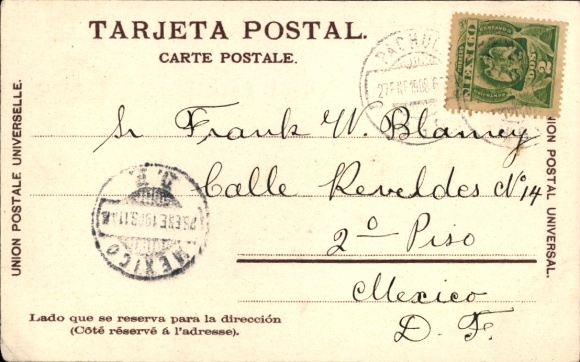 TARJETA POSTAL.
CARTE POSTALE.
UNION POSTALE UNIVERSELLE.
UNION POSTAL UNIVERSAL.
PACHUCA
MEXICO
2
Sr Frank W. Blamey
Calle Reveldes No 14
2o Piso
Mexico
D. F.
MEXICO
Lado que se reserva para la dirección
(Côté réservé á l'adresse).